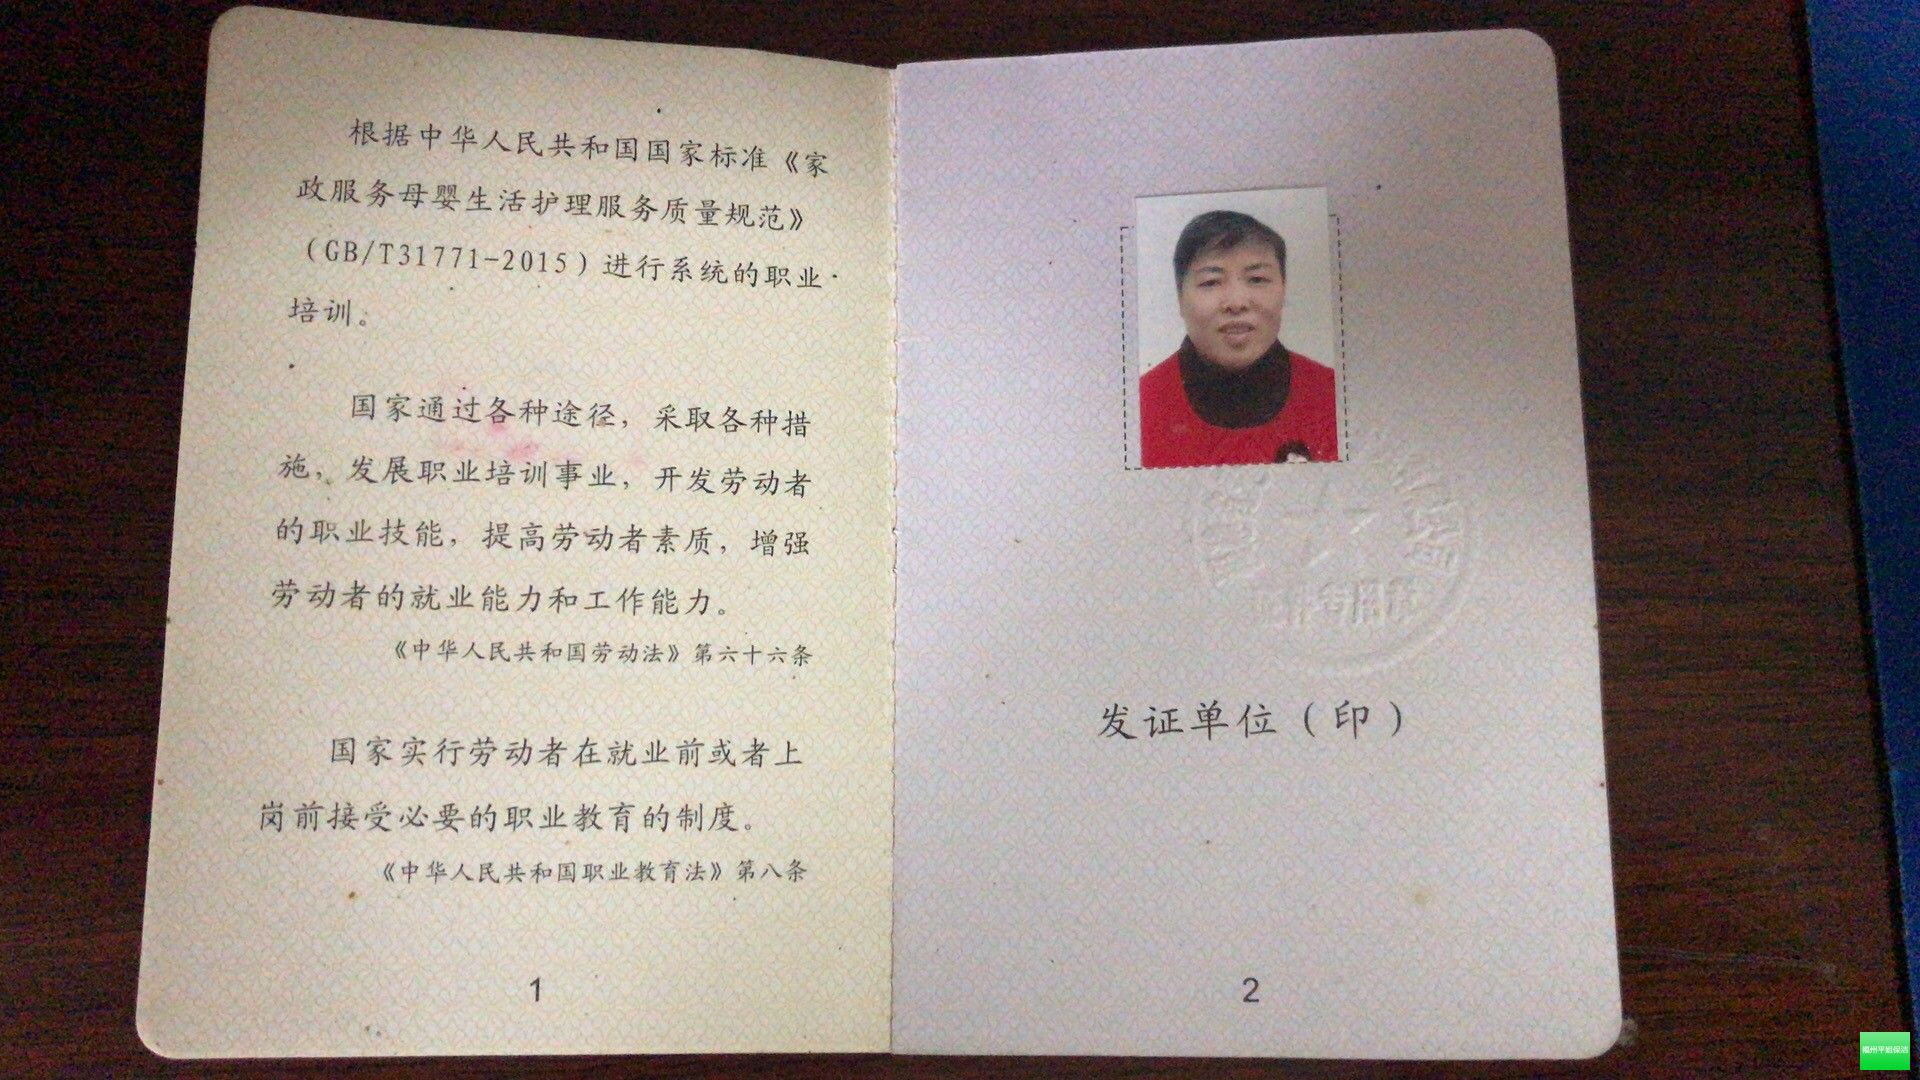 根据中华人民共和国国家标准《家
政服务母婴生活护理服务质量规范》
（GB/T31771-2015）进行系统的职业
培训。
国家通过各种途径，采取各种措
施，发展职业培训事业，开发劳动者
的职业技能，提高劳动者素质，增强
劳动者的就业能力和工作能力。
《中华人民共和国劳动法》第六十六条
国家实行劳动者在就业前或者上
岗前接受必要的职业教育的制度。
《中华人民共和国职业教育法》第八条
1
发证单位（印）
2
福州平姐保洁